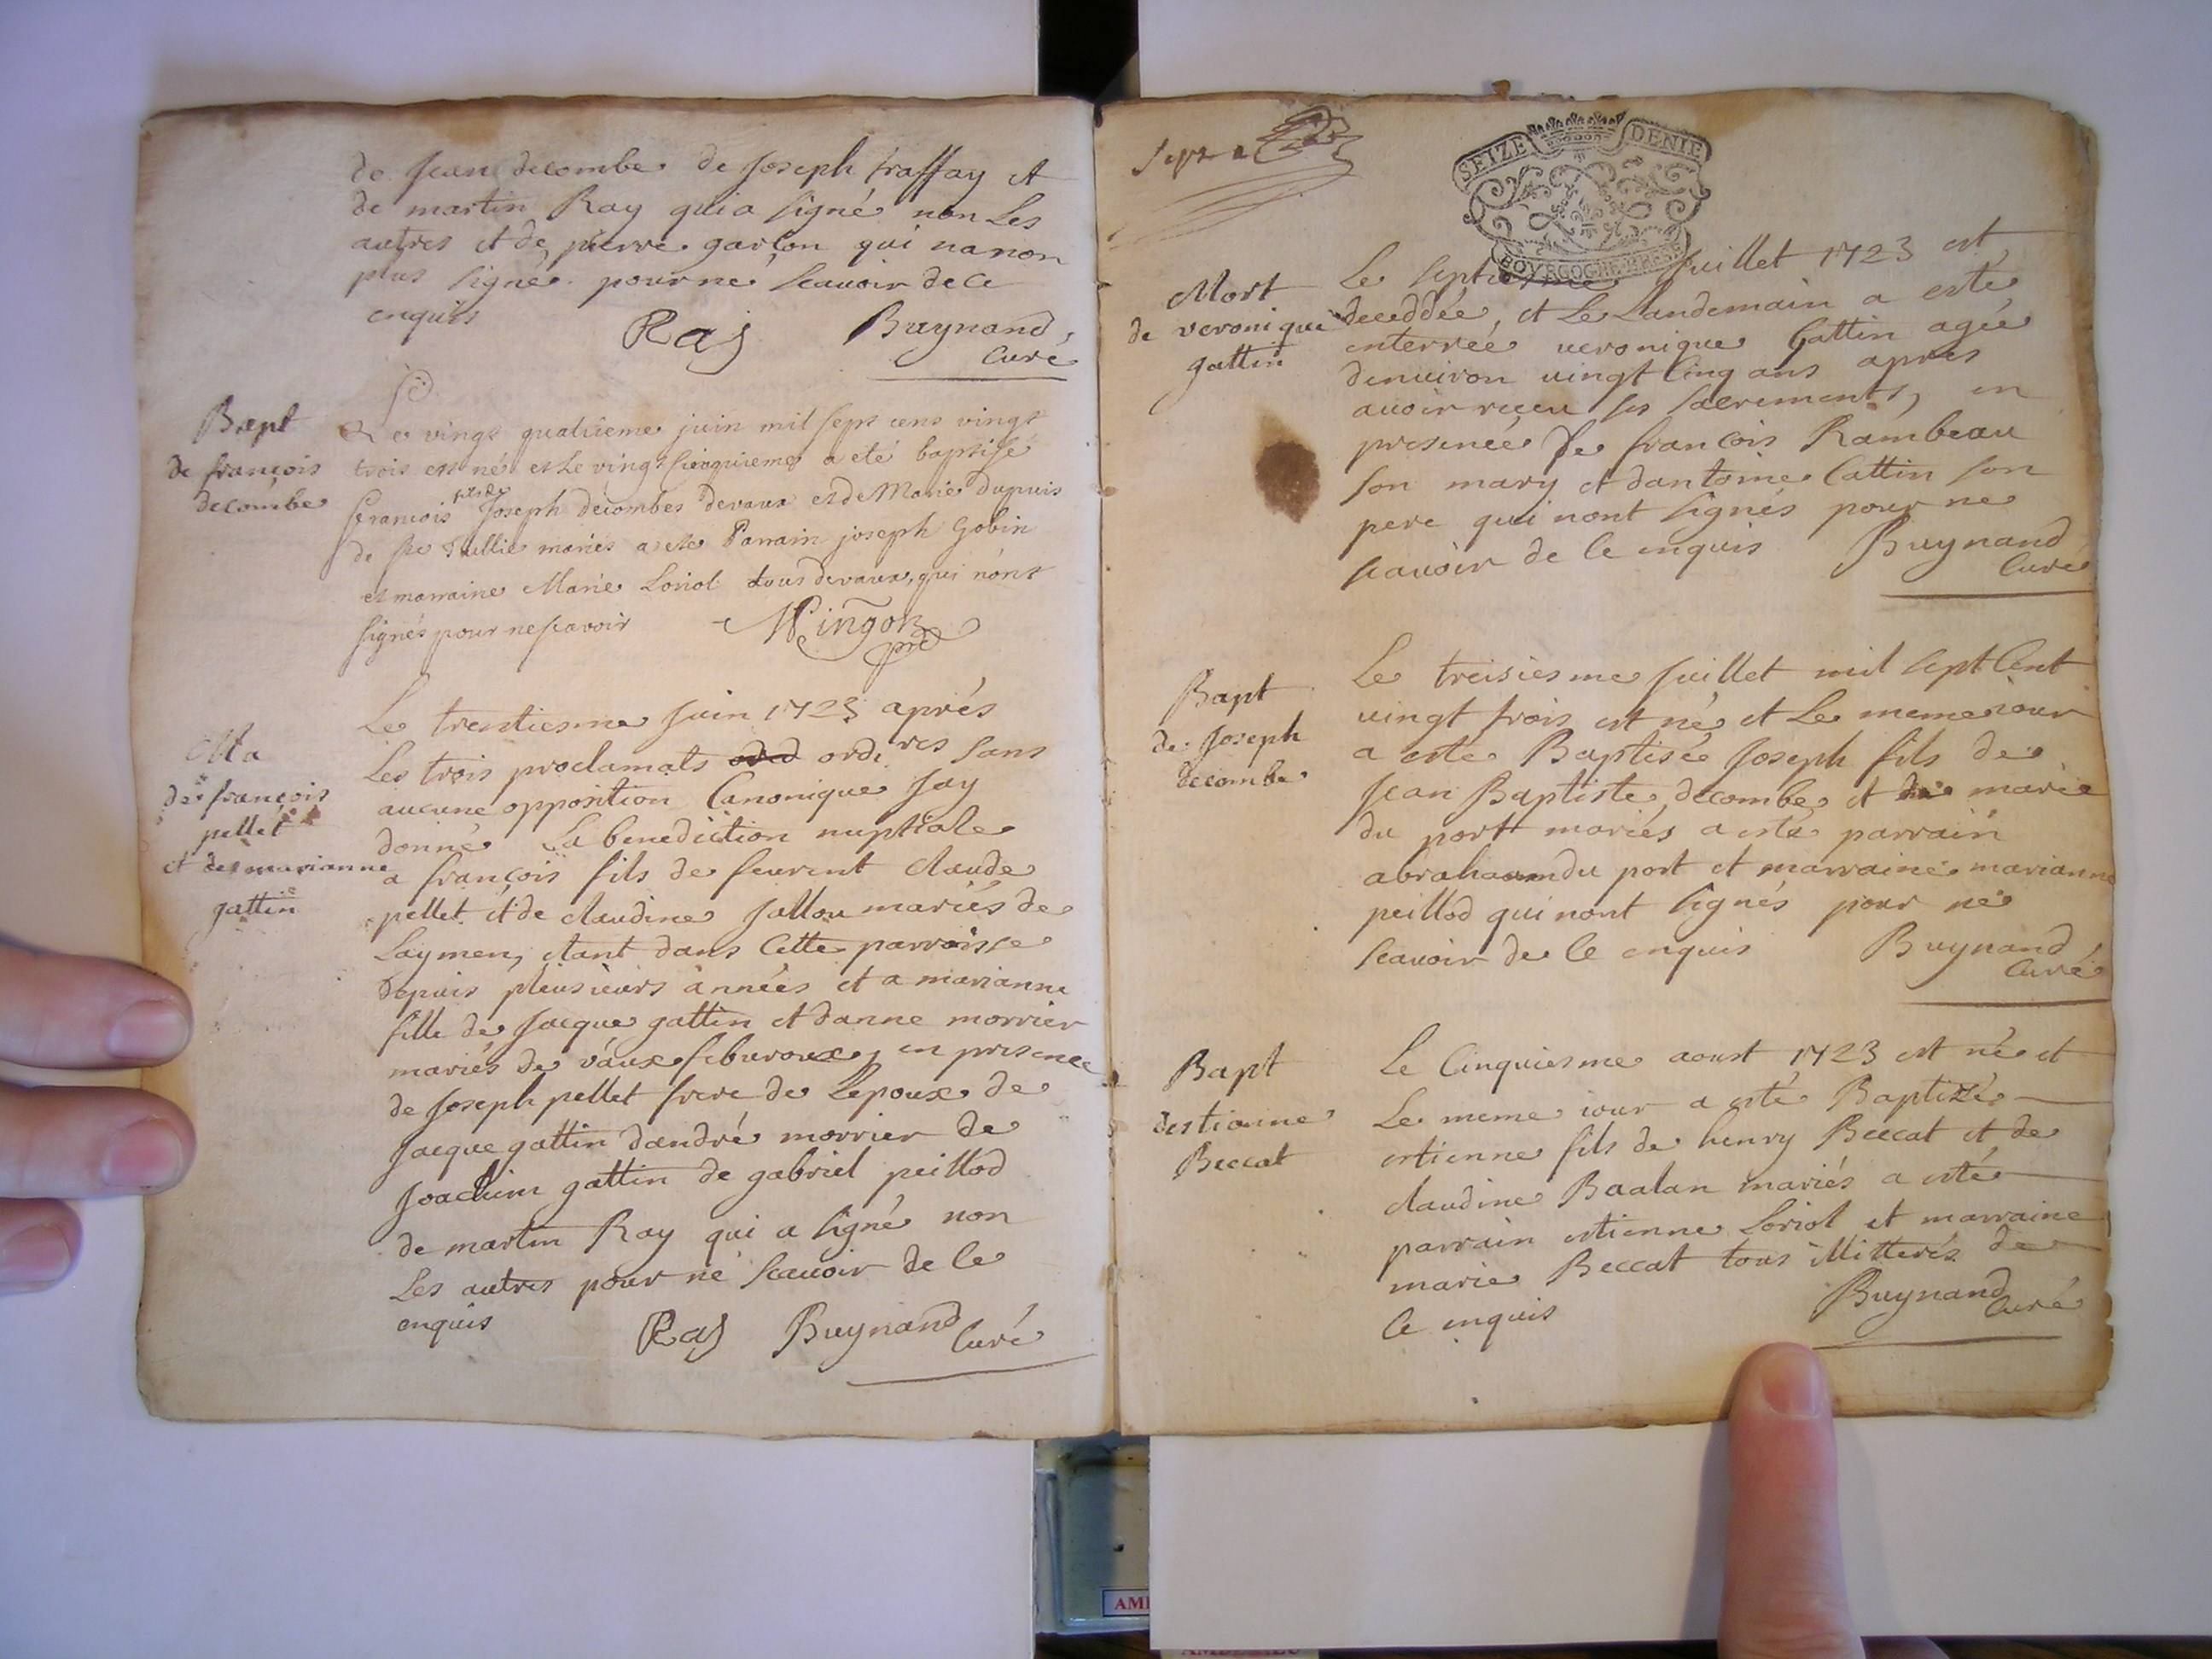 de Jean decombe de Joseph traffay et
de martin Ray qui a signé non Les
autres et de pierre garson qui na non
plus signé pour ne scauoir de ce
enquis
Raj Buynand
Curé
Bapt
de françois
decombe
Le vingt quatrieme juin mil sept cens vingt
trois est né et le vingt cinquieme a eté baptisé
francois fils de Joseph decombes devaux et de Marie Dupuis
de ste Jullie mariés a ete Parrain joseph Gobin
et marraine Marie Loriol tous devaux, qui n'ont
signés pour ne scavoir Mingon
pre
Ma
de françois
pellet
et de marianne
gattin
Le trentiesme Juin 1723 aprés
Les trois proclamats ordires sans
aucune opposition Canonique Jay
donné La benediction nuptiale
a françois fils de feurent claude
pellet et de claudine Jallou mariés de
Laymen, etant dans Cette parroisse
depuis pleusieurs années et a marianne
fille de Jacque gattin et danne morrier
mariés de vaux feburoux, en presence
de Joseph pellet frere de Lepoux de
Jacque gattin dandré morrier de
Joachim gattin de gabriel peillod
de martin Ray qui a signé non
Les autres pour ne scauoir de Ce
enquis
Raj Buynand
Curé
SEIZE DENIE
BOVRGOGNE BRESSE
Mort
de veronique
gattin
Le septiesme Juillet 1723 est
deceddée, et Le Landemain a esté
enterreé veronique Gattin agée
denuiron uingt Cinq ans apres
auoir receu ses sacrements, en
presence de francois Rambeau
son mary et dantoine Cattin son
pere qui nont signés pour ne
scauoir de Ce enquis Buynand
Curé
Bapt
de Joseph
decombe
Le treisiesme Juillet mil sept Cent
uingt trois est né et Le meme iour
a este Baptisée Joseph fils de
Jean Baptiste decombe et de marie
du port mariés a esté parrain
abraham du port et marraine marianne
peillod qui nont signés pour ne
scauoir de Ce enquis Buynand
Curé
Bapt
destienne
Beccat
Le Cinquiesme aoust 1723 est né et
Le meme iour a esté Baptizé
estienne fils de henry Beccat et de
claudine Baalan mariés a esté
parrain estienne Loriol et marraine
marie Beccat tous illitterés de
Ce enquis Buynand
Curé